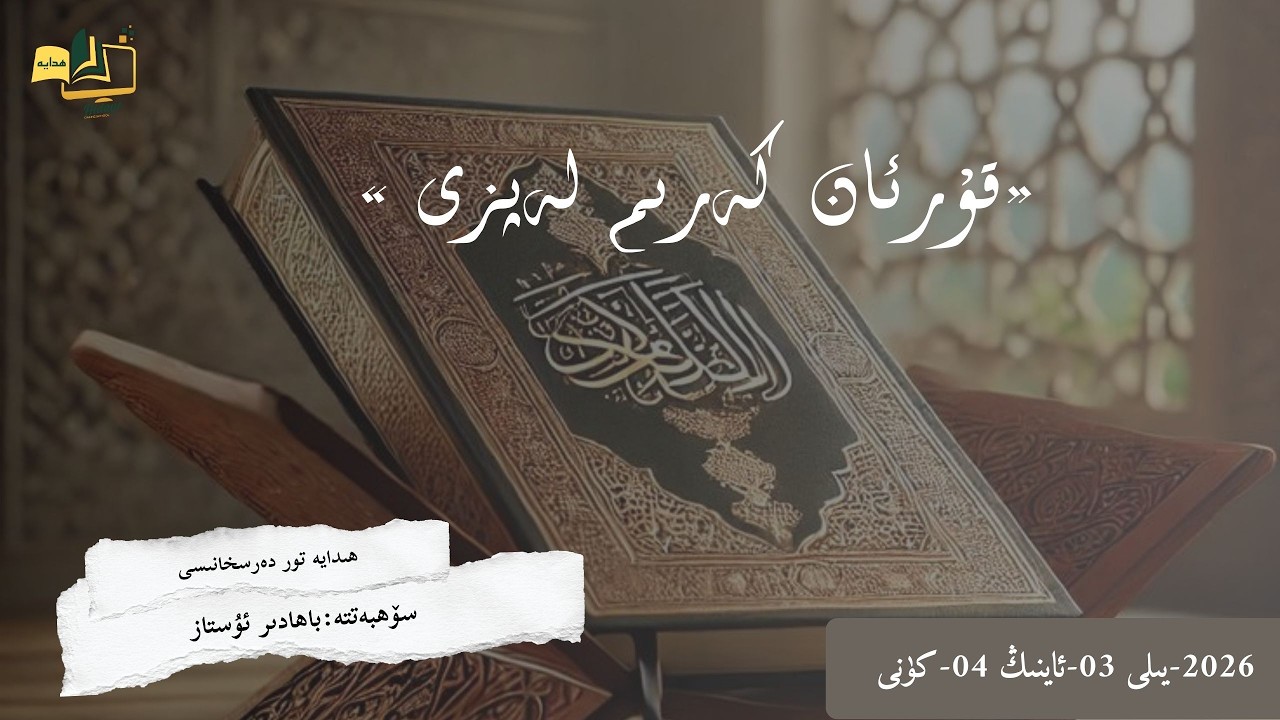 هدايه
»قۇرئان كەرىم لەپزى «
هىدايە تور دەرسخانىسى
سۆھبەتتە:باھادىر ئۇستاز
2026-يىلى 03-ئاينىڭ 04- كۈنى